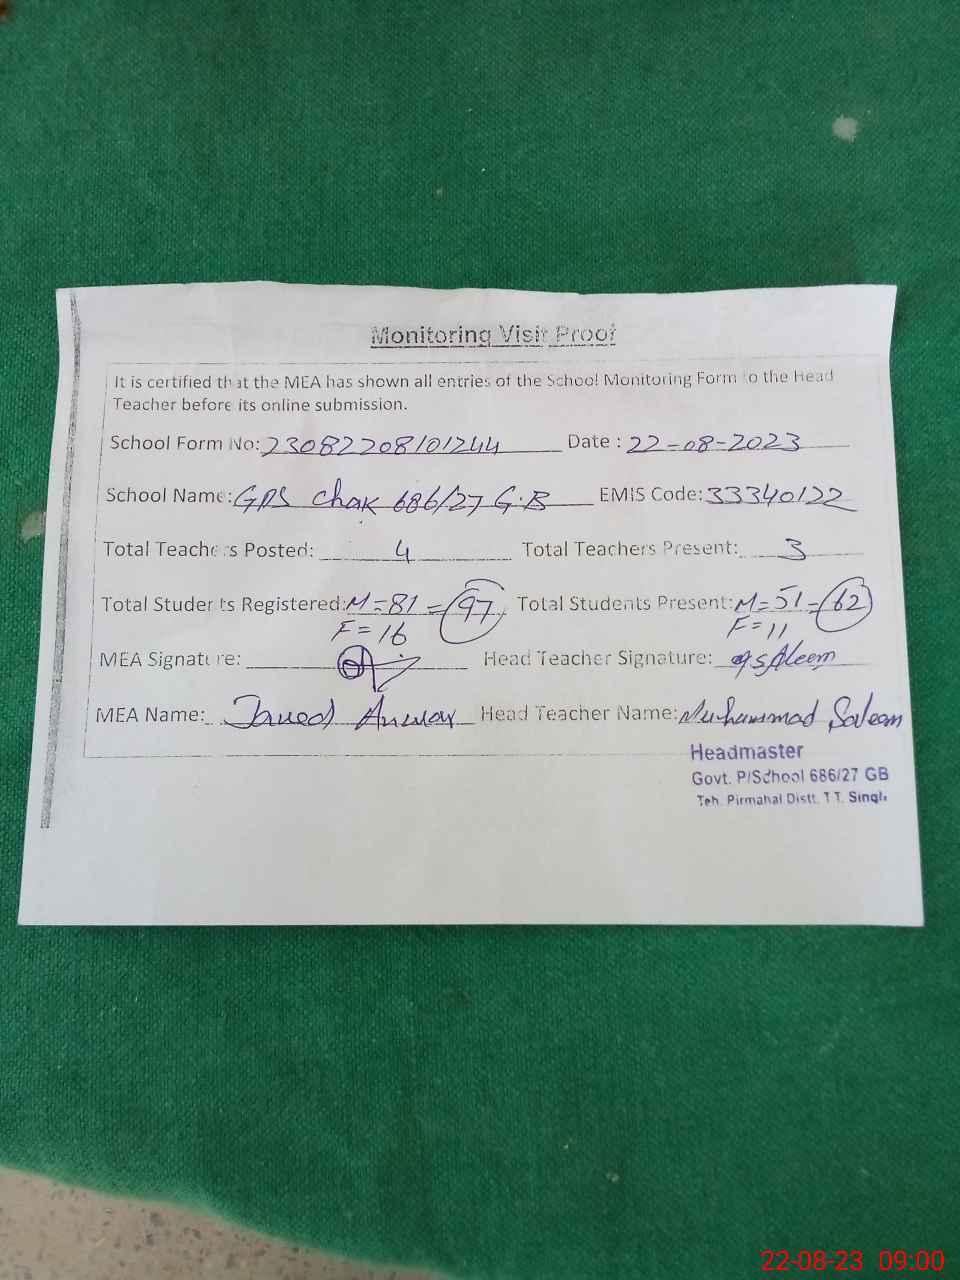 Monitoring Visit Proof
It is certified that the MEA has shown all entries of the School Monitoring Form to the Head
Teacher before its online submission.
School Form No: 23082208101244 Date : 22-08-2023
School Name: GPS Chak 686/27 G.B EMIS Code: 33340122
Total Teachers Posted: 4 Total Teachers Present: 3
Total Students Registered: M=81 = 97 Total Students Present: M=51 = 62
F=16 F=11
MEA Signature: Head Teacher Signature:
MEA Name: Javed Anwar Head Teacher Name: Muhammad Saleem
Headmaster
Govt. P/School 686/27 GB
Teh. Pirmahal Distt. T.T. Singh
22-08-23 09:00